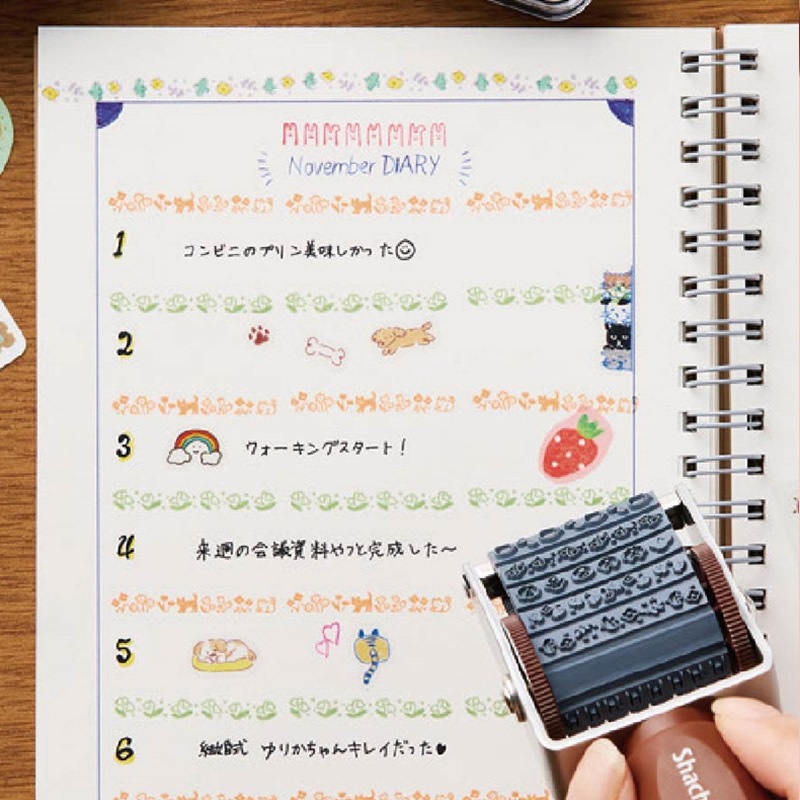 November DIARY
1 コンビニのプリン美味しかった
2
3 ウォーキングスタート!
4 来週の会議資料やっと完成した~
5
6 ゆりかちゃんキレイだった♥
Shach